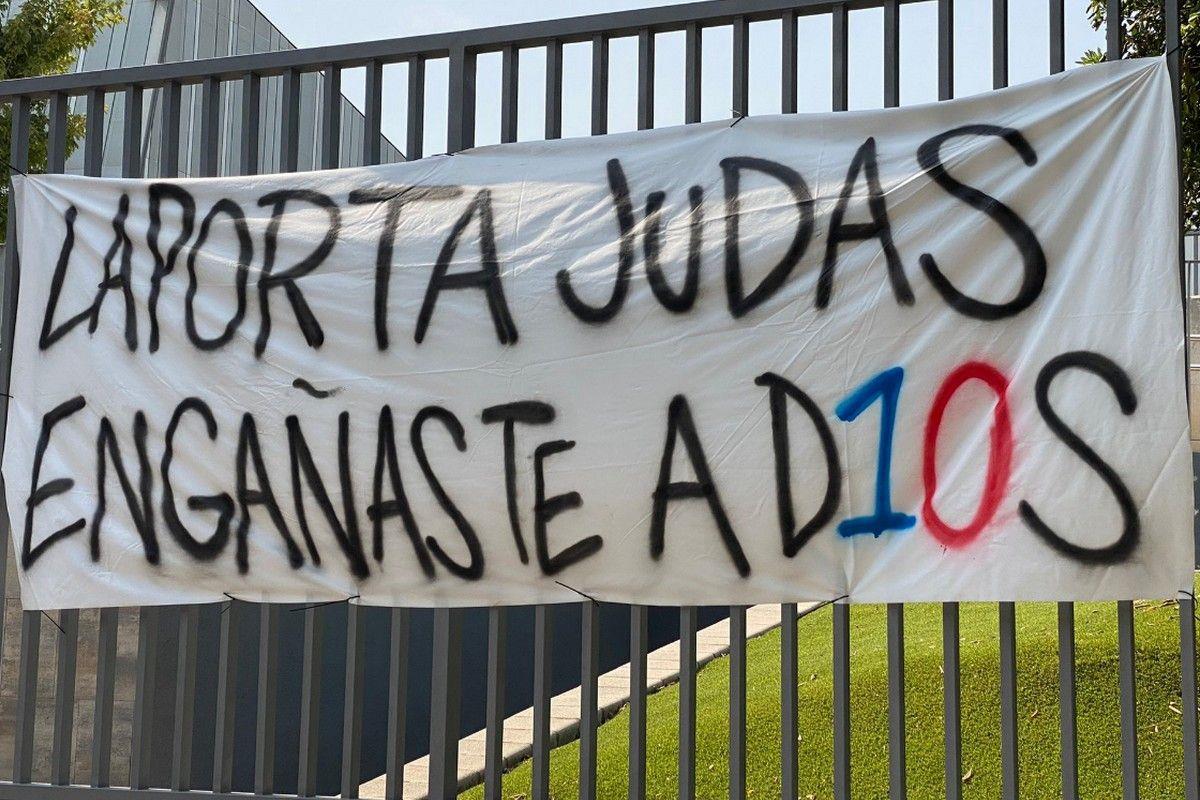 LAPORTA JUDAS
ENGAÑASTE A D10S